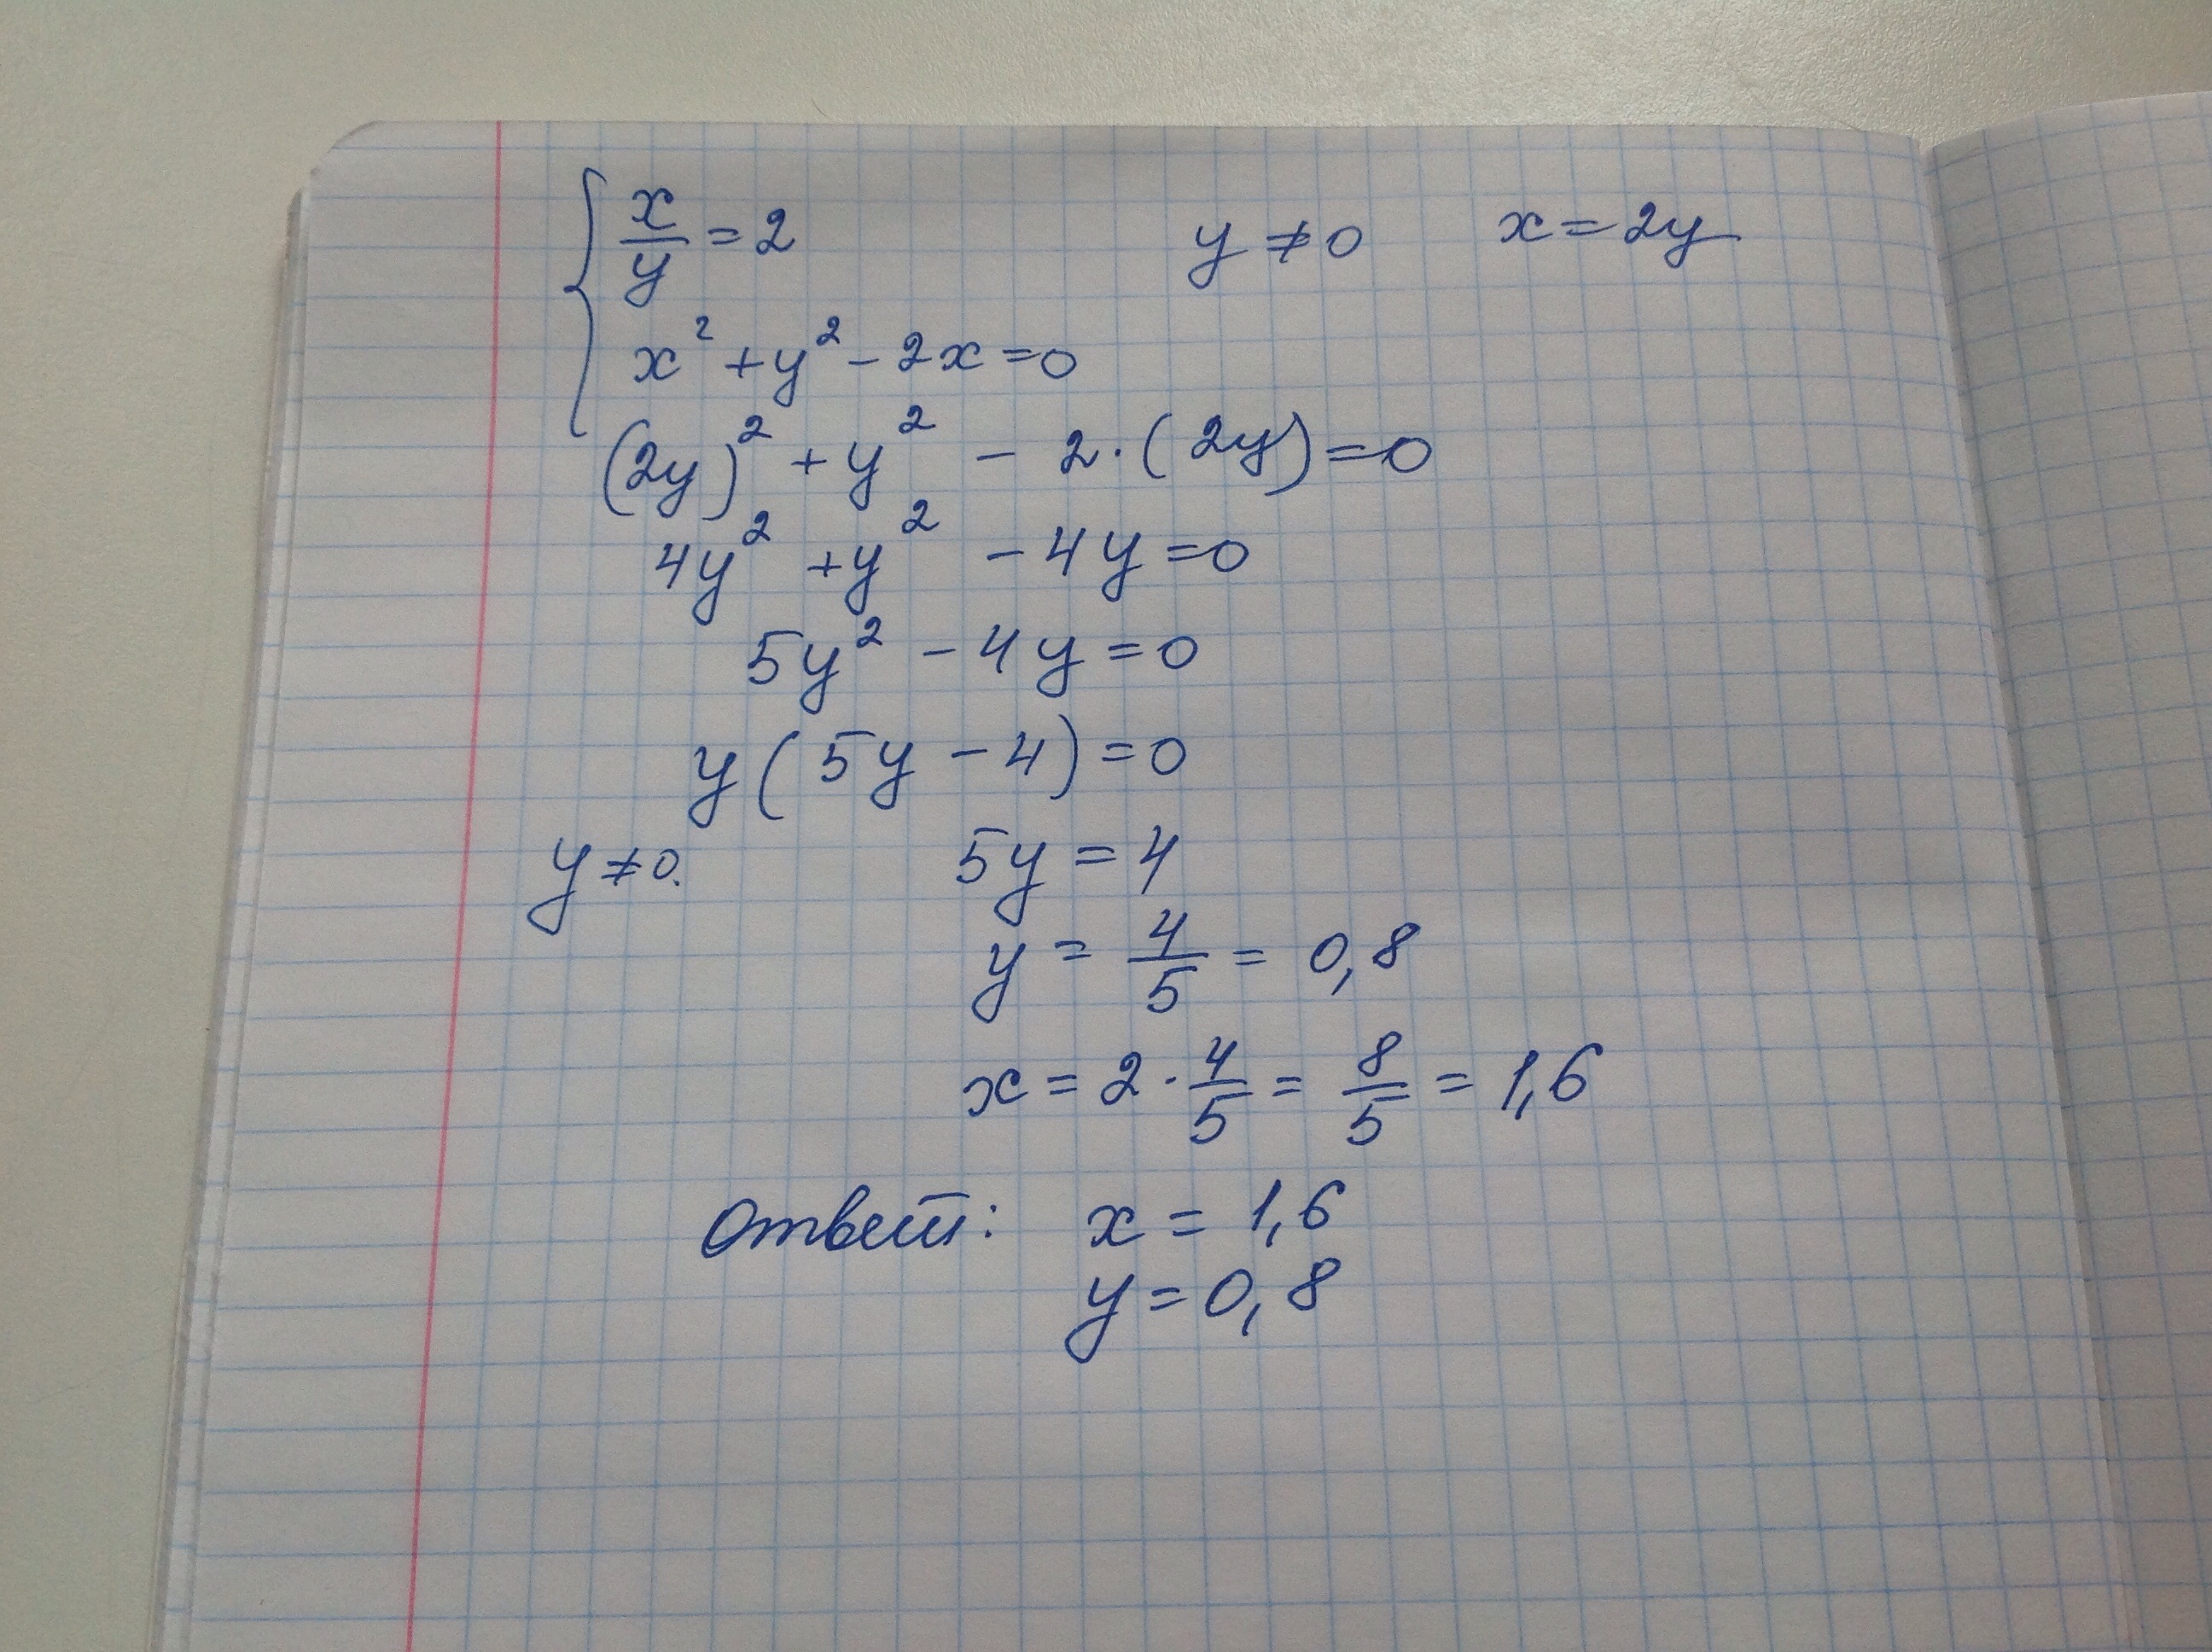 { x/y = 2 y ≠ 0 x = 2y
x² + y² - 2x = 0
(2y)² + y² - 2·(2y) = 0
4y² + y² - 4y = 0
5y² - 4y = 0
y(5y - 4) = 0
y ≠ 0. 5y = 4
y = 4/5 = 0,8
x = 2·4/5 = 8/5 = 1,6
Ответ: x = 1,6
y = 0,8